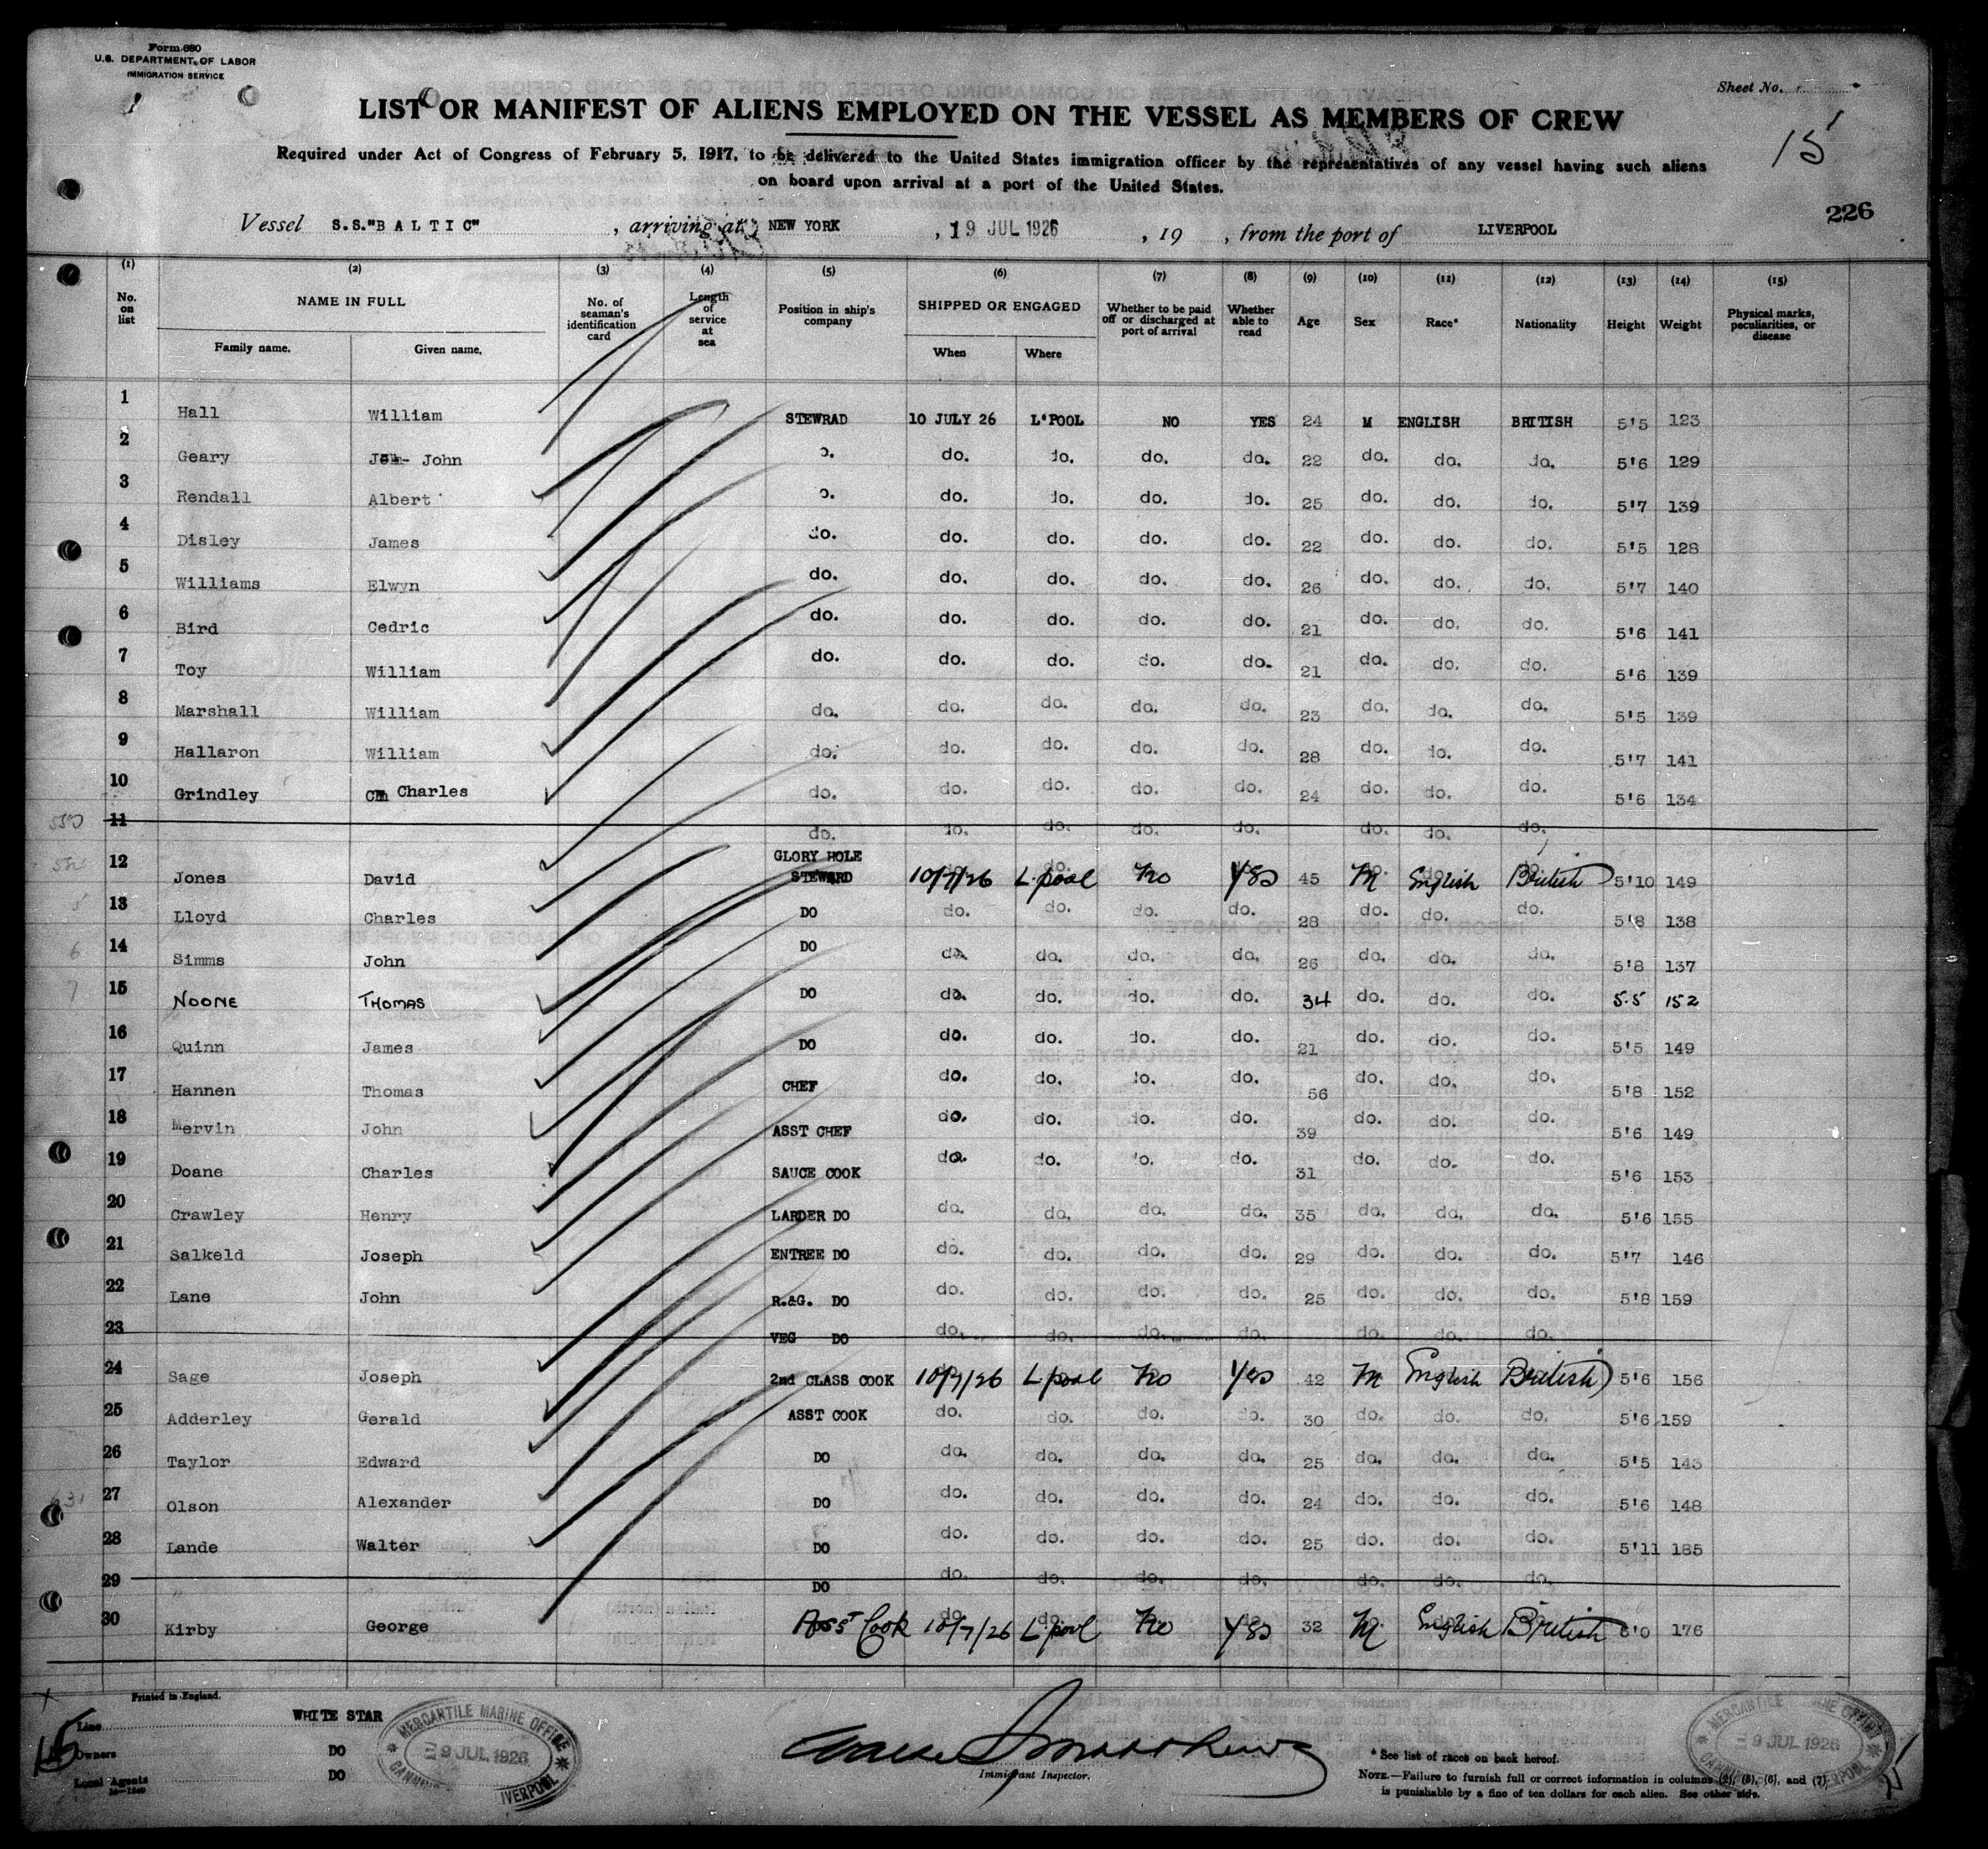 Form 680
U.S. DEPARTMENT OF LABOR
IMMIGRATION SERVICE
Sheet No.
15
LIST OR MANIFEST OF ALIENS EMPLOYED ON THE VESSEL AS MEMBERS OF CREW
Required under Act of Congress of February 5, 1917, to be delivered to the United States immigration officer by the representatives of any vessel having such aliens
on board upon arrival at a port of the United States.
226
Vessel S.S."BALTIC", arriving at NEW YORK, 19 JUL 1926, 19 , from the port of LIVERPOOL
(1) (2) (3) (4) (5) (6) (7) (8) (9) (10) (11) (12) (13) (14) (15)
No. on list NAME IN FULL Family name. Given name. No. of seaman's identification card Length of service at sea Position in ship's company SHIPPED OR ENGAGED When Where Whether to be paid off or discharged at port of arrival Whether able to read Age Sex Race* Nationality Height Weight Physical marks, peculiarities, or disease
1 Hall William STEWRAD 10 JULY 26 L'POOL NO YES 24 M ENGLISH BRITISH 5'5 123
2 Geary John o. do. do. do. do. 22 do. do. do. 5'6 129
3 Rendall Albert o. do. do. do. do. 25 do. do. do. 5'7 139
4 Disley James do. do. do. do. do. 22 do. do. do. 5'5 128
5 Williams Elwyn do. do. do. do. do. 26 do. do. do. 5'7 140
6 Bird Cedric do. do. do. do. do. 21 do. do. do. 5'6 141
7 Toy William do. do. do. do. do. 21 do. do. do. 5'6 139
8 Marshall William do. do. do. do. do. 23 do. do. do. 5'5 139
9 Hallaron William do. do. do. do. do. 28 do. do. do. 5'7 141
10 Grindley Charles do. do. do. do. do. 24 do. do. do. 5'6 134
11 do. do. do. do. do. do. do. do.
12 Jones David GLORY HOLE STEWARD 10/7/26 L.pool No Yes 45 M English British 5'10 149
13 Lloyd Charles DO do. do. do. do. 28 do. do. do. 5'8 138
14 Simms John DO do. do. do. do. 26 do. do. do. 5'8 137
15 NOONE THOMAS DO do. do. do. do. 34 do. do. do. 5.5 152
16 Quinn James DO do. do. do. do. 21 do. do. do. 5'5 149
17 Hannen Thomas CHEF do. do. do. do. 56 do. do. do. 5'8 152
18 Mervin John ASST CHEF do. do. do. do. 39 do. do. do. 5'6 149
19 Doane Charles SAUCE COOK do. do. do. do. 31 do. do. do. 5'6 153
20 Crawley Henry LARDER DO do. do. do. do. 35 do. do. do. 5'6 155
21 Salkeld Joseph ENTREE DO do. do. do. do. 29 do. do. do. 5'7 146
22 Lane John R.&G. DO do. do. do. do. 25 do. do. do. 5'8 159
23 VEG DO do. do. do. do. do. do. do.
24 Sage Joseph 2nd CLASS COOK 10/7/26 L.pool No Yes 42 M English British 5'6 156
25 Adderley Gerald ASST COOK do. do. do. do. 30 do. do. do. 5'6 159
26 Taylor Edward DO do. do. do. do. 25 do. do. do. 5'5 143
27 Olson Alexander DO do. do. do. do. 24 do. do. do. 5'6 148
28 Lande Walter DO do. do. do. do. 25 do. do. do. 5'11 185
29 DO do. do. do. do. do. do. do.
30 Kirby George Asst Cook 10/7/26 L.pool No Yes 32 M English British 6'0 176
Printed in England.
Line WHITE STAR
Owners DO
Local Agents DO
15
MERCANTILE MARINE OFFICE
9 JUL 1926
LIVERPOOL
Immigrant Inspector.
* See list of races on back hereof.
NOTE.—Failure to furnish full or correct information in columns (2), (5), (6), and (7)
is punishable by a fine of ten dollars for each alien. See other side.
MERCANTILE MARINE OFFICE
9 JUL 1926
LIVERPOOL